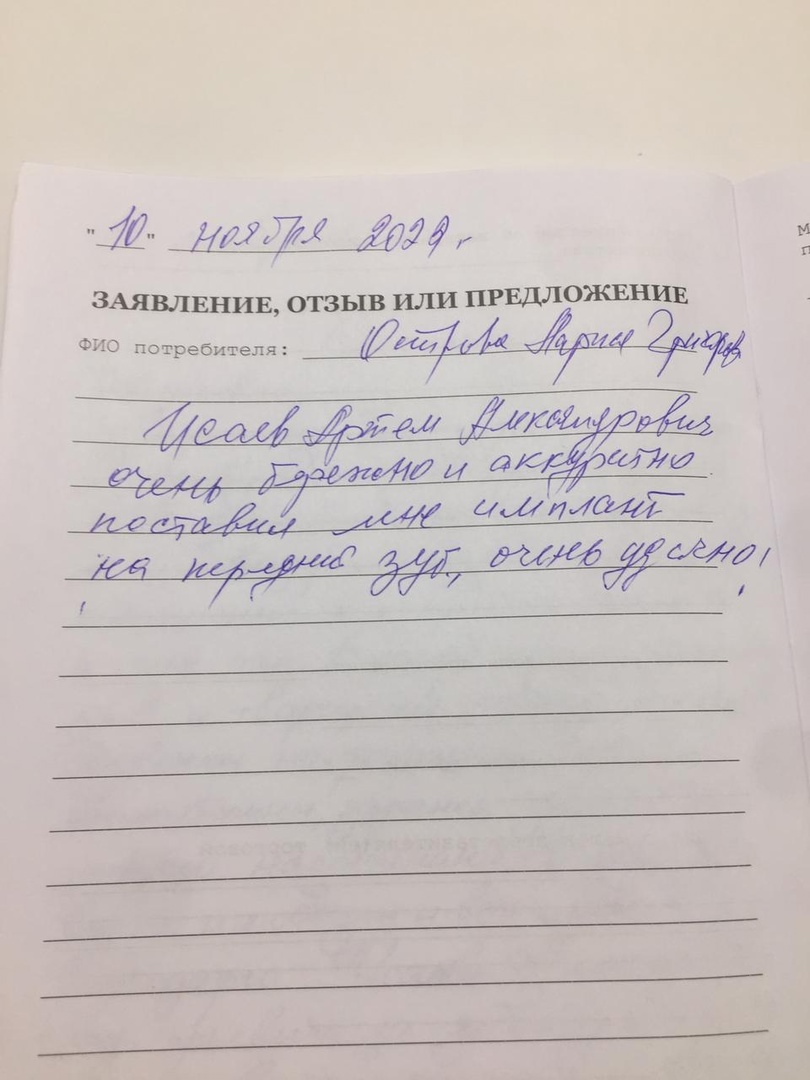 "10" ноября 2022 г.
ЗАЯВЛЕНИЕ, ОТЗЫВ ИЛИ ПРЕДЛОЖЕНИЕ
ФИО потребителя: Острова Лариса
Исаев Артем Александрович
очень бережно и аккуратно
поставил мне имплант
на передний зуб, очень удачно!